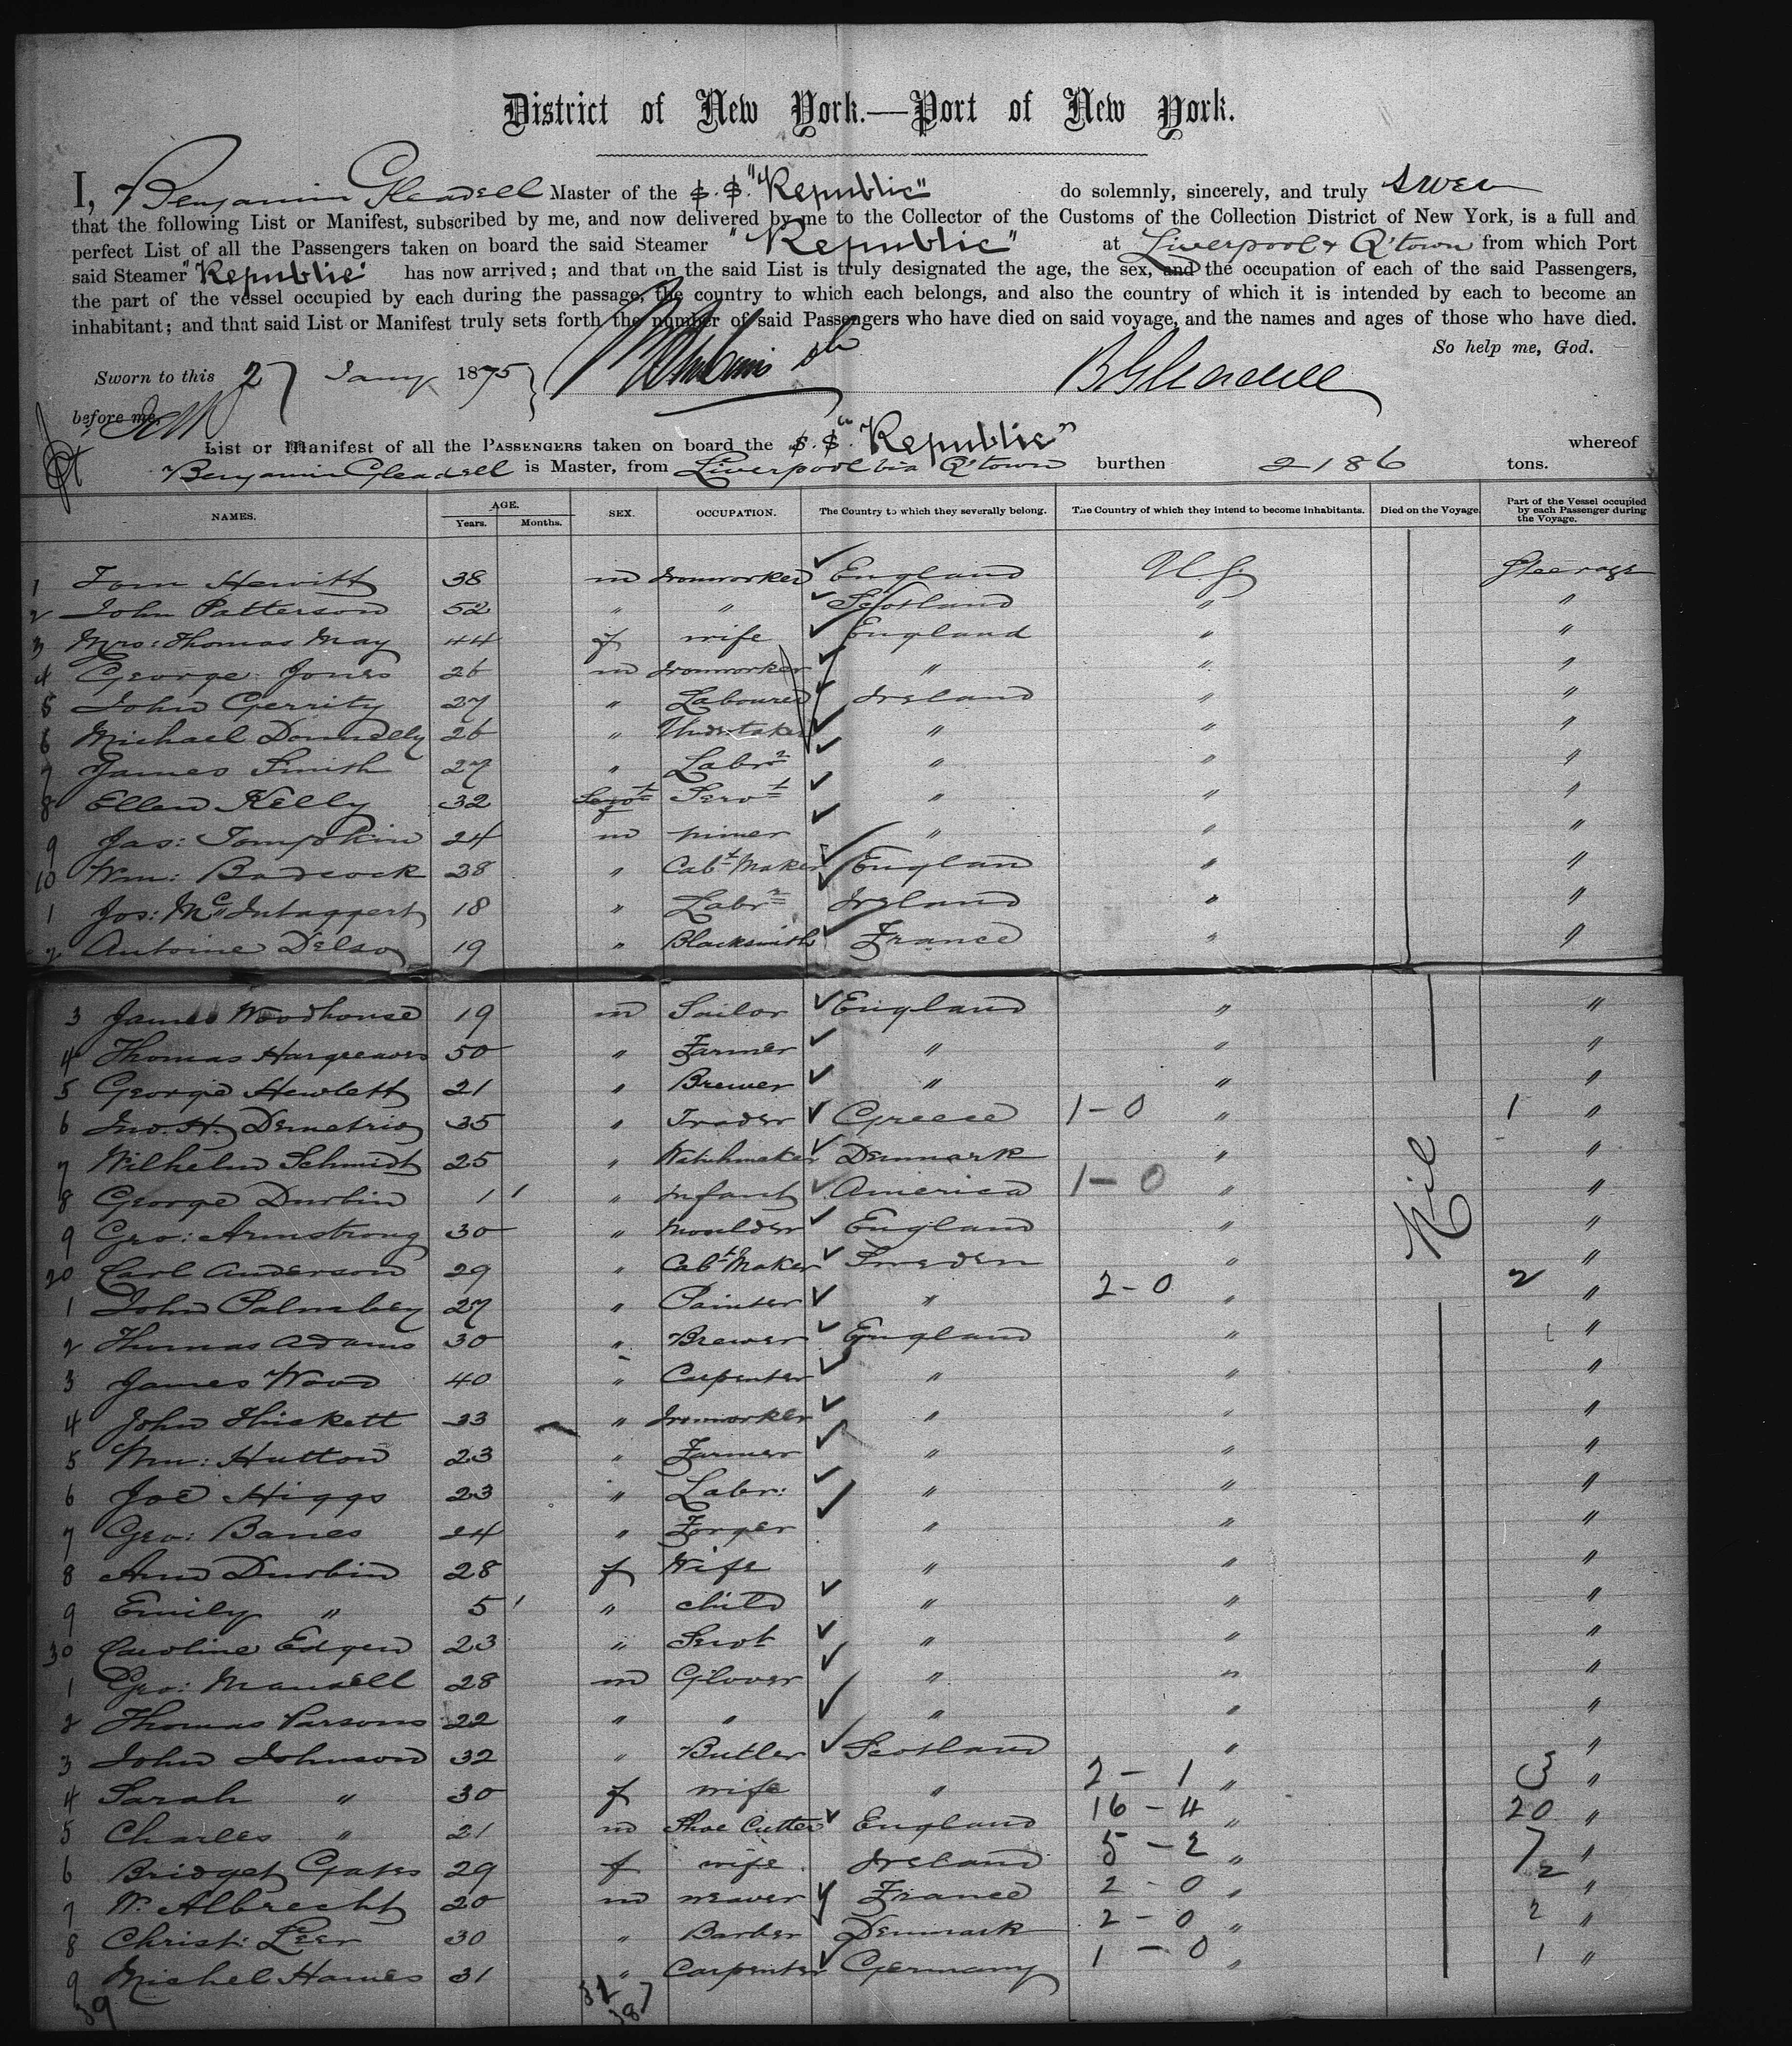 District of New York.—Port of New York.
I, Benjamin Gleadell Master of the S.S. "Republic" do solemnly, sincerely, and truly swear
that the following List or Manifest, subscribed by me, and now delivered by me to the Collector of the Customs of the Collection District of New York, is a full and
perfect List of all the Passengers taken on board the said Steamer "Republic" at Liverpool & Q'town from which Port
said Steamer "Republic" has now arrived; and that on the said List is truly designated the age, the sex, and the occupation of each of the said Passengers,
the part of the vessel occupied by each during the passage, the country to which each belongs, and also the country of which it is intended by each to become an
inhabitant; and that said List or Manifest truly sets forth the number of said Passengers who have died on said voyage, and the names and ages of those who have died.
So help me, God.
Sworn to this 27 Jany 1875 } B Gleadell
before me.
List or Manifest of all the PASSENGERS taken on board the S.S. "Republic" whereof
Benjamin Gleadell is Master, from Liverpool via Q'town burthen 2186 tons.
NAMES. AGE. Years. Months. SEX. OCCUPATION. The Country to which they severally belong. The Country of which they intend to become inhabitants. Died on the Voyage. Part of the Vessel occupied by each Passenger during the Voyage.
1 Tom Hewitt 38 m Ironworker England U.S. Steerage
2 John Patterson 52 " " Scotland " "
3 Mrs: Thomas May 44 f wife England " "
4 George Jones 26 m Ironworker " " "
5 John Gerrity 27 " Labourer Ireland " "
6 Michael Donnelly 26 " Undertaker " " "
7 James Smith 27 " Labr " " "
8 Ellen Kelly 32 f Servt " " "
9 Jas: Tompkin 24 m miner " " "
10 Wm: Badcock 38 " Cabt Maker England " "
1 Jos: McIntaggert 18 " Labr Ireland " "
2 Antoine Delso 19 " Blacksmith France " "
3 James Woodhouse 19 m Sailor England " "
4 Thomas Hargreaves 50 " Farmer " " "
5 George Hewlett 21 " Brewer " " "
6 Jno. H. Demetrio 35 " Trader Greece 1-0 " 1 "
7 Wilhelm Schmidt 25 " Watchmaker Denmark " "
8 George Durbin 1 " Infant America 1-0 " "
9 Geo: Armstrong 30 " Moulder England " "
20 Carl Anderson 29 " Cabt Maker Sweden " "
1 John Palmbey 27 " Painter " 2-0 " 2 "
2 Thomas Adams 30 " Brewer England " "
3 James Wood 40 " Carpenter " " "
4 John Thiskett 33 " Ironworker " " "
5 Wm: Hutton 23 " Farmer " " "
6 Joe Higgs 23 " Labr: " " "
7 Geo: Banes 24 " Forger " " "
8 Ann Durbin 28 f Wife " " "
9 Emily " 5 " child " " "
30 Caroline Edgen 23 " Servt " " "
1 Geo: Mansell 28 m Glover " " "
2 Thomas Parsons 22 " " " " "
3 John Johnson 32 " Butler Scotland " "
4 Sarah " 30 f wife " 2-1 " 3 "
5 Charles " 21 m Shoe Cutter England 16-4 " 20 "
6 Bridget Gates 29 f wife Ireland 5-2 " 7 "
7 W. Albrecht 20 m weaver France 2-0 " 2 "
8 Christ: Leer 30 " Barber Denmark 2-0 " 2 "
9 Michel Hames 31 " Carpenter Germany 1-0 " 1 "
Nil
39